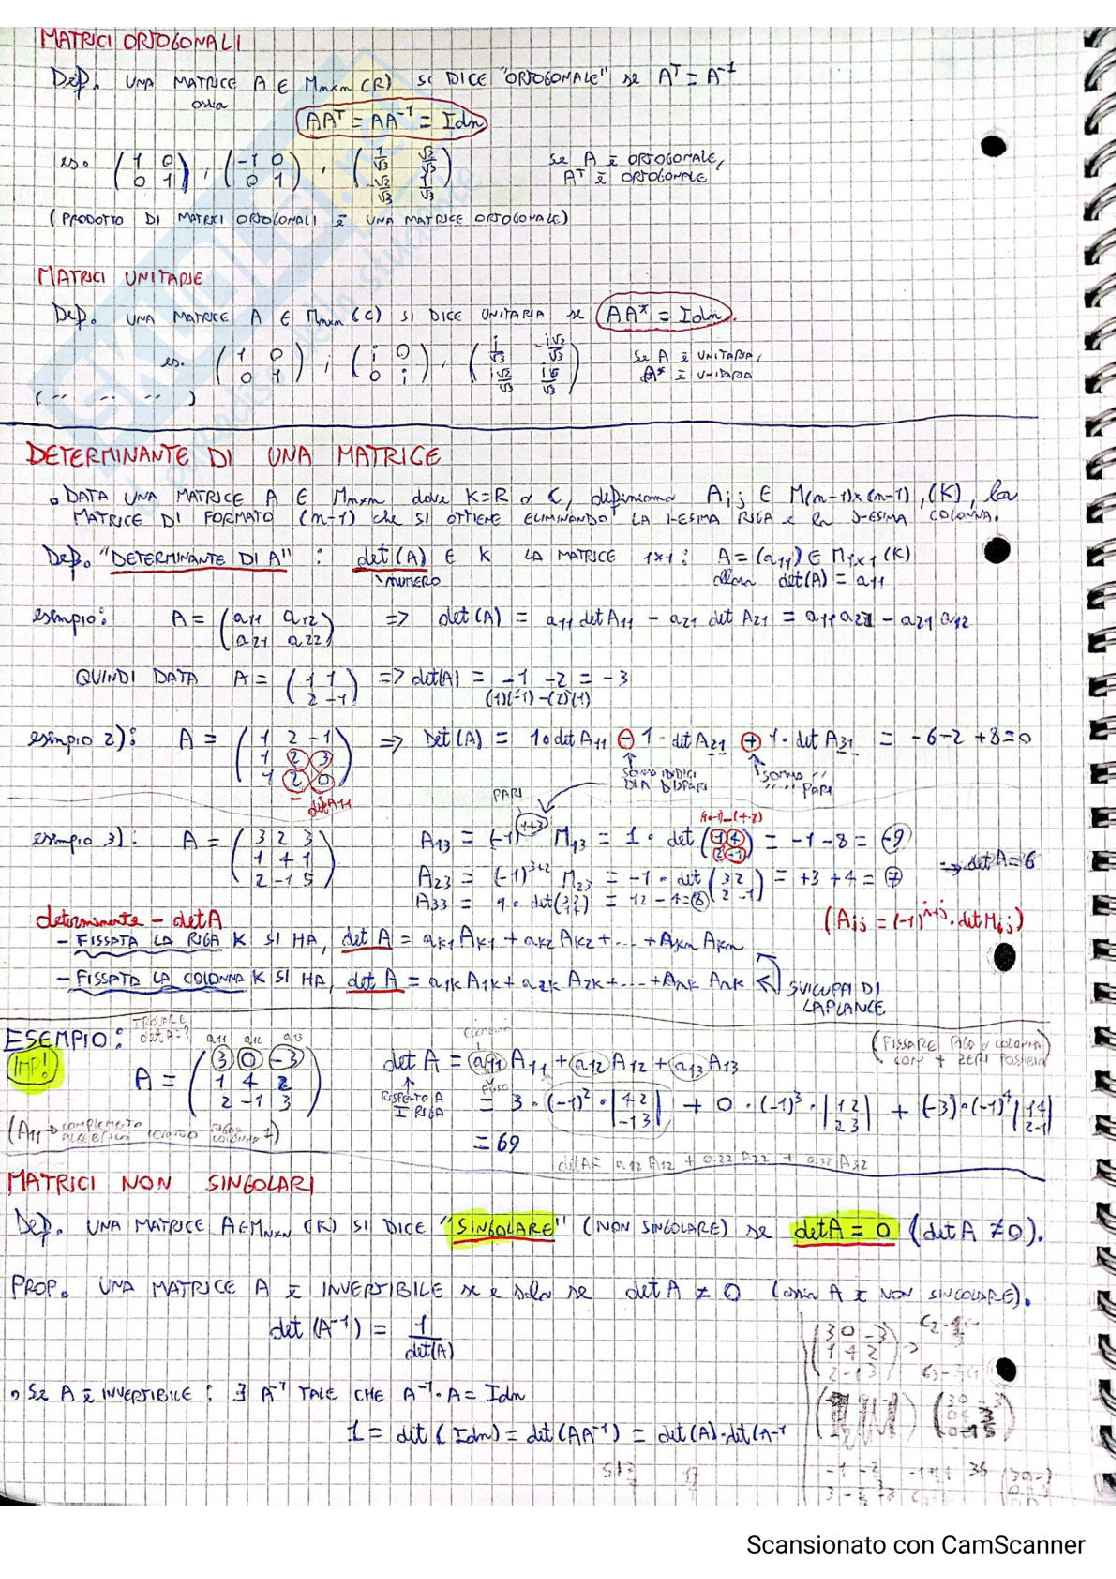 MATRICI ORTOGONALI
Def. UNA MATRICE A ∈ Mnxn (R) SI DICE "ORTOGONALE" se Aᵀ = A⁻¹
ovvia
AAᵀ = AA⁻¹ = Idn
es. (1 0 / 0 1), (-1 0 / 0 1), (1/√3 √2/√3 / -√2/√3 1/√3) se A è ORTOGONALE,
Aᵀ è ORTOGONALE
(PRODOTTO DI MATRICI ORTOGONALI è UNA MATRICE ORTOGONALE)
MATRICI UNITARIE
Def. UNA MATRICE A ∈ Mnxn (C) SI DICE UNITARIA se AA* = Idn.
es. (1 0 / 0 1), (i 0 / 0 i), (i/√3 -i√2/√3 / i√2/√3 i/√3) se A è UNITARIA,
A* è UNITARIA
( " " " )
DETERMINANTE DI UNA MATRICE
• DATA UNA MATRICE A ∈ Mnxn dove K=R o C, definiamo Aij ∈ M(n-1)x(n-1), (K), la
MATRICE DI FORMATO (n-1) che SI OTTIENE ELIMINANDO LA I-ESIMA RIGA e la J-ESIMA COLONNA.
Def. "DETERMINANTE DI A" : det(A) ∈ K LA MATRICE 1x1: A = (a11) ∈ M1x1 (K)
NUMERO allora det(A) = a11
esempio: A = (a11 a12 / a21 a22) => det(A) = a11 det A11 - a21 det A21 = a11 a22 - a21 a12
QUINDI DATA A = (1 1 / 2 -1) => det(A) = -1 -2 = -3
(1)(-1) - (2)(1)
esempio 2): A = (1 2 -1 / 1 2 3 / 1 2 0) => Det(A) = 1·det A11 - 1·det A21 + 1·det A31 = -6-2+8=0
SOMMA INDICI
DIA DISPARI
SOMMA " "
PARI
det A11
PARI
esempio 3): A = (3 2 3 / 1 4 1 / 2 -1 5) A13 = (-1)¹⁺³ M13 = 1 · det (1 4 / 2 -1) = -1 - 8 = -9
=> det A = 6
A23 = (-1)³⁺² M23 = -1 · det (3 2 / 2 -1) = +3 + 4 = 7
A33 = 1 · det(3 2 / 1 4) = 12 - 4 = 8
determinante - det A
(Aij = (-1)ⁱ⁺ʲ · det Mij)
- FISSATA LA RIGA K SI HA, det A = ak1 Ak1 + ak2 Ak2 + ... + Akn Akn
- FISSATA LA COLONNA K SI HA, det A = a1k A1k + a2k A2k + ... + Ank Ank
SVILUPPI DI
LAPLANCE
ESEMPIO:
IMP!
a11 a12 a13
A = (3 0 -3 / 1 4 2 / 2 -1 3) det A = a11 A11 + a12 A12 + a13 A13
(FISSARE RIGA o COLONNA
CON + ZERI POSSIBILI)
RISPETTO A
I RIGA
= 3 · (-1)² · |4 2 / -1 3| + 0 · (-1)³ · |1 2 / 2 3| + (-3) · (-1)⁴ |1 4 / 2 -1|
(A11 → complemento
= 69
det A = a12 A12 + a22 A22 + a32 A32
MATRICI NON SINGOLARI
Def. UNA MATRICE A∈Mnxn (K) SI DICE "SINGOLARE" (NON SINGOLARE) se det A = 0 (det A ≠ 0).
PROP. UNA MATRICE A è INVERTIBILE se e solo se det A ≠ 0 (ossia A è NON SINGOLARE).
det (A⁻¹) = 1/det(A)
• Se A è INVERTIBILE : ∃ A⁻¹ TALE CHE A⁻¹·A = Idn
1 = det (Idn) = det (AA⁻¹) = det(A)·det(A⁻¹
(3 0 -3 / 1 4 2 / 2 -1 3)
Scansionato con CamScanner